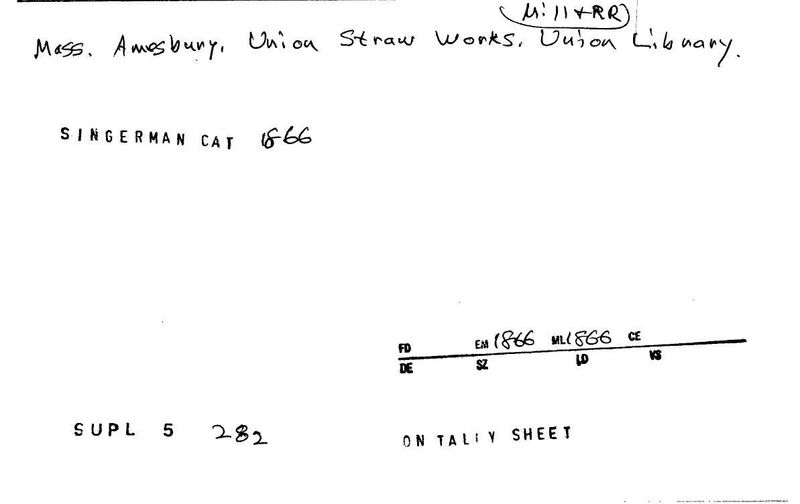 (Mill + RR)
Mass. Amesbury. Union Straw Works. Union Library.
SINGERMAN CAT 1866
FD EM 1866 ML 1866 CE
DE SZ LD VS
SUPL 5 282
ON TALLY SHEET